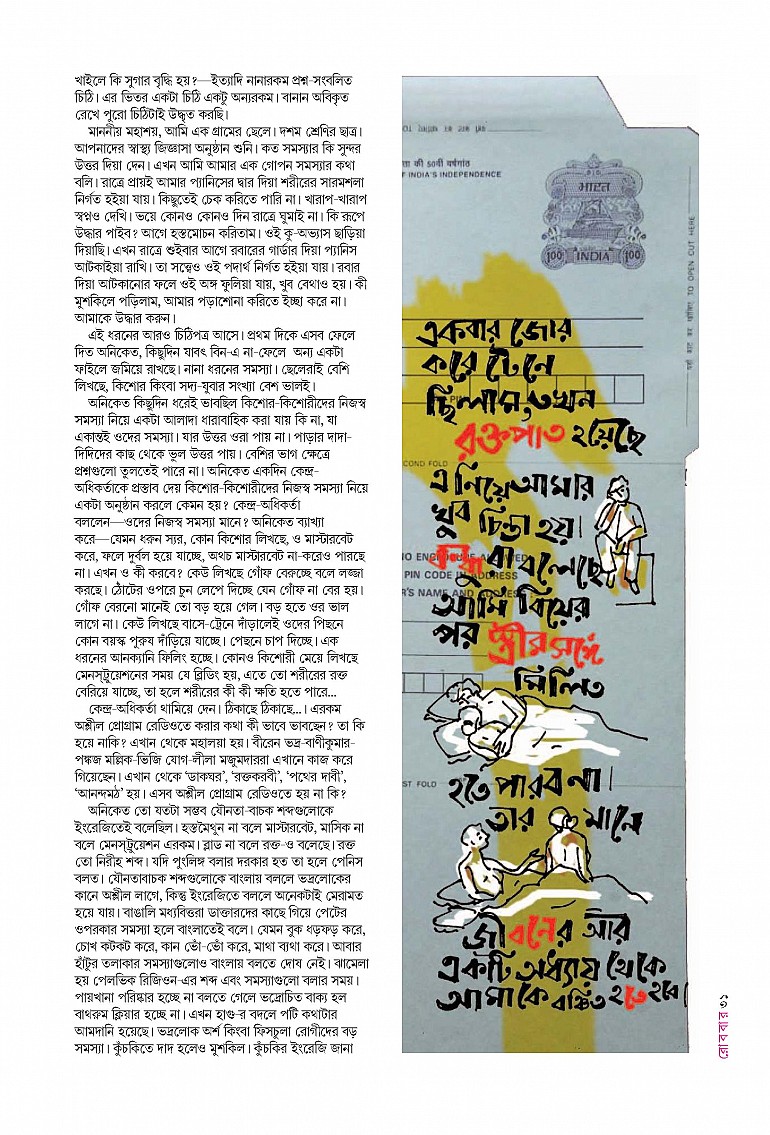 খাইলে কি সুগার বৃদ্ধি হয়?—ইত্যাদি নানারকম প্রশ্ন-সংবলিত
চিঠি। এর ভিতর একটা চিঠি একটু অন্যরকম। বানান অবিকৃত
রেখে পুরো চিঠিটাই উদ্ধৃত করছি।
মাননীয় মহাশয়, আমি এক গ্রামের ছেলে। দশম শ্রেণির ছাত্র।
আপনাদের স্বাস্থ্য জিজ্ঞাসা অনুষ্ঠান শুনি। কত সমস্যার কি সুন্দর
উত্তর দিয়া দেন। এখন আমি আমার এক গোপন সমস্যার কথা
বলি। রাত্রে প্রায়ই আমার প্যানিসের দ্বার দিয়া শরীরের সারমশলা
নির্গত হইয়া যায়। কিছুতেই চেক করিতে পারি না। খারাপ-খারাপ
স্বপ্নও দেখি। ভয়ে কোনও কোনও দিন রাত্রে ঘুমাই না। কি রূপে
উদ্ধার পাইব? আগে হস্তমোচন করিতাম। ওই কু-অভ্যাস ছাড়িয়া
দিয়াছি। এখন রাত্রে শুইবার আগে রবারের গার্ডার দিয়া প্যানিস
আটকাইয়া রাখি। তা সত্ত্বেও ওই পদার্থ নির্গত হইয়া যায়। রবার
দিয়া আটকানোর ফলে ওই অঙ্গ ফুলিয়া যায়, খুব বেথাও হয়। কী
মুশকিলে পড়িলাম, আমার পড়াশোনা করিতে ইচ্ছা করে না।
আমাকে উদ্ধার করুন।
এই ধরনের আরও চিঠিপত্র আসে। প্রথম দিকে এসব ফেলে
দিত অনিকেত, কিছুদিন যাবৎ বিন-এ না-ফেলে অন্য একটা
ফাইলে জমিয়ে রাখছে। নানা ধরনের সমস্যা। ছেলেরাই বেশি
লিখছে, কিশোর কিংবা সদ্য-যুবার সংখ্যা বেশ ভালই।
অনিকেত কিছুদিন ধরেই ভাবছিল কিশোর-কিশোরীদের নিজস্ব
সমস্যা নিয়ে একটা আলাদা ধারাবাহিক করা যায় কি না, যা
একান্তই ওদের সমস্যা। যার উত্তর ওরা পায় না। পাড়ার দাদা-
দিদিদের কাছ থেকে ভুল উত্তর পায়। বেশির ভাগ ক্ষেত্রে
প্রশ্নগুলো তুলতেই পারে না। অনিকেত একদিন কেন্দ্র-
অধিকর্তাকে প্রস্তাব দেয় কিশোর-কিশোরীদের নিজস্ব সমস্যা নিয়ে
একটা অনুষ্ঠান করলে কেমন হয়? কেন্দ্র-অধিকর্তা
বললেন—ওদের নিজস্ব সমস্যা মানে? অনিকেত ব্যাখ্যা
করে—যেমন ধরুন স্যর, কোন কিশোর লিখছে, ও মাস্টারবেট
করে, ফলে দুর্বল হয়ে যাচ্ছে, অথচ মাস্টারবেট না-করেও পারছে
না। এখন ও কী করবে? কেউ লিখছে গোঁফ বেরুচ্ছে বলে লজ্জা
করছে। ঠোঁটের ওপরে চুন লেপে দিচ্ছে যেন গোঁফ না বের হয়।
গোঁফ বেরনো মানেই তো বড় হয়ে গেল। বড় হতে ওর ভাল
লাগে না। কেউ লিখছে বাসে-ট্রেনে দাঁড়ালেই ওদের পিছনে
কোন বয়স্ক পুরুষ দাঁড়িয়ে যাচ্ছে। পেছনে চাপ দিচ্ছে। এক
ধরনের আনক্যানি ফিলিং হচ্ছে। কোনও কিশোরী মেয়ে লিখছে
মেনস্‌ট্রুয়েশনের সময় যে ব্লিডিং হয়, এতে তো শরীরের রক্ত
বেরিয়ে যাচ্ছে, তা হলে শরীরের কী কী ক্ষতি হতে পারে...
কেন্দ্র-অধিকর্তা থামিয়ে দেন। ঠিকাছে ঠিকাছে...। এরকম
অশ্লীল প্রোগ্রাম রেডিওতে করার কথা কী ভাবে ভাবছেন? তা কি
হয়ে নাকি? এখান থেকে মহালয়া হয়। বীরেন ভদ্র-বাণীকুমার-
পঙ্কজ মল্লিক-ভিজি যোগ-লীলা মজুমদাররা এখানে কাজ করে
গিয়েছেন। এখান থেকে ‘ডাকঘর’, ‘রক্তকরবী’, ‘পথের দাবী’,
‘আনন্দমঠ’ হয়। এসব অশ্লীল প্রোগ্রাম রেডিওতে হয় না কি?
অনিকেত তো যতটা সম্ভব যৌনতা-বাচক শব্দগুলোকে
ইংরেজিতেই বলেছিল। হস্তমৈথুন না বলে মাস্টারবেট, মাসিক না
বলে মেনস্‌ট্রুয়েশন এরকম। ব্লাড না বলে রক্ত-ও বলেছে। রক্ত
তো নিরীহ শব্দ। যদি পুংলিঙ্গ বলার দরকার হত তা হলে পেনিস
বলত। যৌনতাবাচক শব্দগুলোকে বাংলায় বললে ভদ্রলোকের
কানে অশ্লীল লাগে, কিন্তু ইংরেজিতে বললে অনেকটাই মেরামত
হয়ে যায়। বাঙালি মধ্যবিত্তরা ডাক্তারদের কাছে গিয়ে পেটের
ওপরকার সমস্যা হলে বাংলাতেই বলে। যেমন বুক ধড়ফড় করে,
চোখ কটকট করে, কান ভোঁ-ভোঁ করে, মাথা ব্যথা করে। আবার
হাঁটুর তলাকার সমস্যাগুলোও বাংলায় বলতে দোষ নেই। ঝামেলা
হয় পেলভিক রিজিওন-এর শব্দ এবং সমস্যাগুলো বলার সময়।
পায়খানা পরিষ্কার হচ্ছে না বলতে গেলে ভদ্রোচিত বাক্য হল
বাথরুম ক্লিয়ার হচ্ছে না। এখন হাগু-র বদলে পটি কথাটার
আমদানি হয়েছে। ভদ্রলোক অর্শ কিংবা ফিসচুলা রোগীদের বড়
সমস্যা। কুঁচকিতে দাদ হলেও মুশকিল। কুঁচকির ইংরেজি জানা
ता की 50वीं वर्षगांठ
F INDIA'S INDEPENDENCE
भारत
100 INDIA 100
TO OPEN CUT HERE
একবার জোর
করে টেনে
ছিলাম, তখন
রক্তপাত হয়েছে
COND FOLD
এ নিয়ে আমার
খুব চিন্তা হয়।
বলেছে
PIN CODE IN ADDRESS
R'S NAME AND
আমি বিয়ের
পর স্ত্রীর সঙ্গে
মিলিত
ST FOLD
হতে পারব না।
তার মানে
জীবনের আর
একটি অধ্যায় থেকে
আমাকে বঞ্চিত হতে হবে।
রোববার ৩১